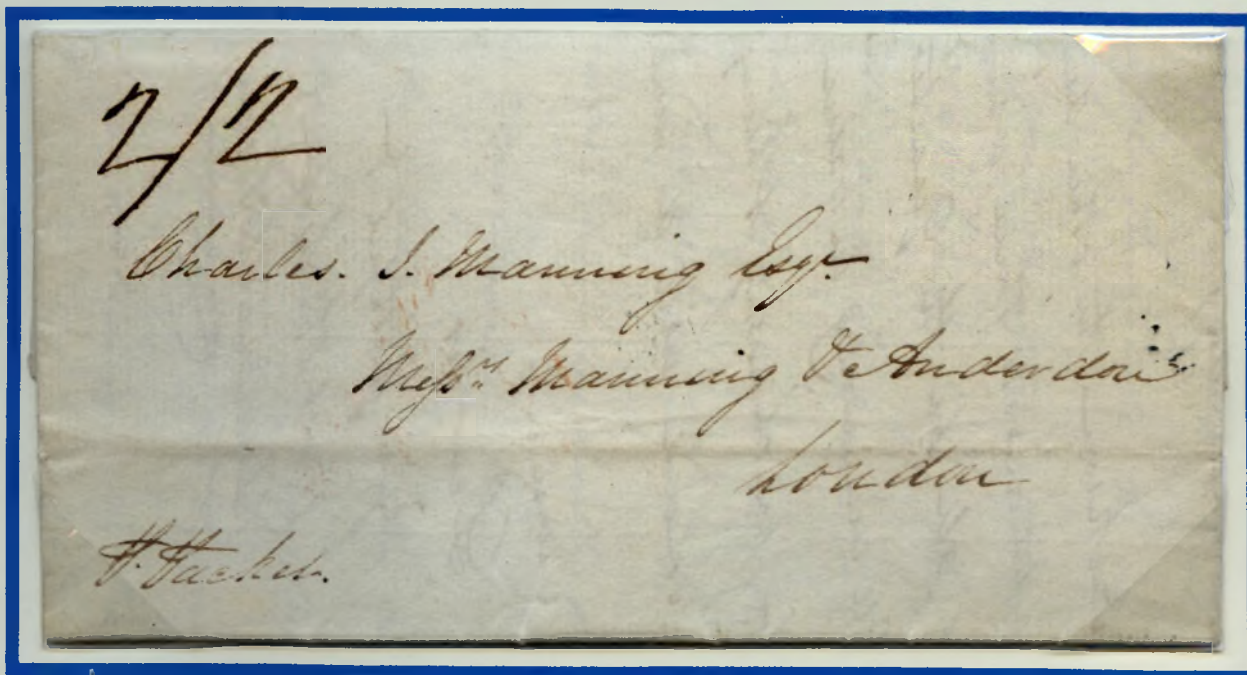 2/2
Charles. J. Manning Esqr.
Messrs Manning & Anderdon
London
P. Packet.